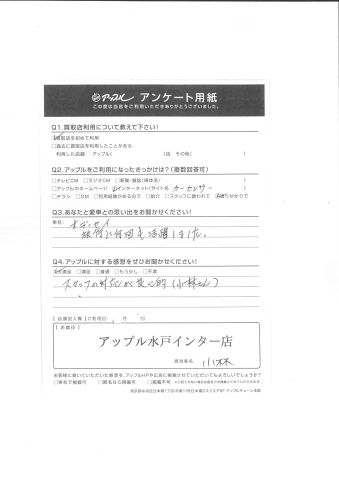 アップル アンケート用紙
この度は当店をご利用いただきありがとうございました。
Q1.買取店利用について教えて下さい!
買取店を初めて利用
□過去に買取店を利用したことがある
利用した店舗:アップル( )店 その他( )
Q2.アップルをご利用になったきっかけは?(複数回答可)
□テレビCM □ラジオCM □新聞・雑誌(媒体名/ )
□アップルのホームページ インターネット(サイト名 カーセンサー )
□チラシ □DM □利用経験があるので □紹介 □スタッフに誘われて
Q3.あなたと愛車との思い出をお聞かせください!
車名:オデッセイ
旅行に何回も活躍しました。
Q4.アップルに対する感想をぜひお聞かせください!
大満足 □満足 □普通 □もう少し □不満
スタッフの対応が良心的(小林さん)
【店舗記入欄】ご利用日: 月 日
【店舗印】
アップル水戸インター店
担当者名 小林
お客様に書いていただいた感想を、アップルHPや広告に掲載させていただいてもよろしいでしょうか?
□実名で掲載可 □匿名なら掲載可 □掲載不可